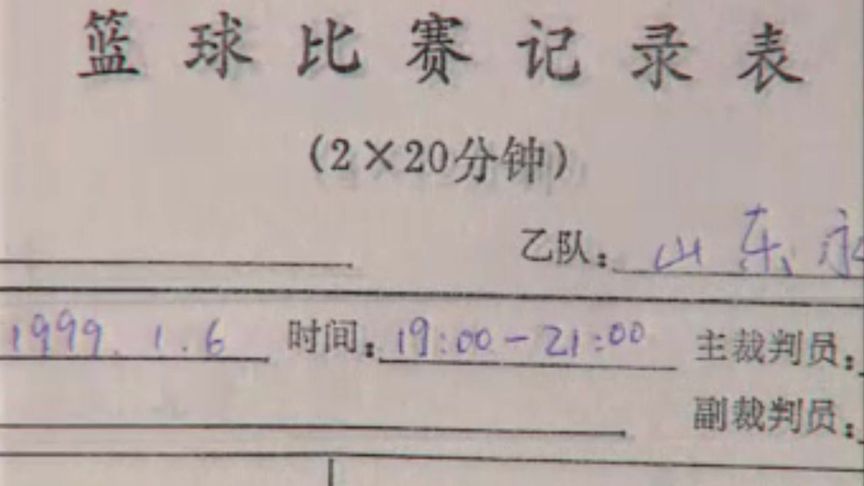 篮球比赛记录表
(2×20分钟)
乙队: 山东永
1999.1.6 时间: 19:00-21:00 主裁判员:
副裁判员: